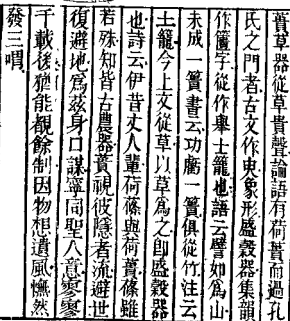 蕢草器從草貴聲論語有荷蕢而過孔
氏之門者古文作臾象形盛穀器集韻
作簣字從作𢌿土籠也語云譬如爲山
未成一簣書云功虧一簣俱從竹注云
土籠今上文從草以草爲之卽盛穀器
也詩云伊昔丈人輩荷蓧與荷蕢蓧雖
若殊知皆古農器蕢視彼隱者流避世
復避地爲兹身口謀寧同聖人意寥寥
千載後猶能覩餘制因物想遺風憮然
發三喟